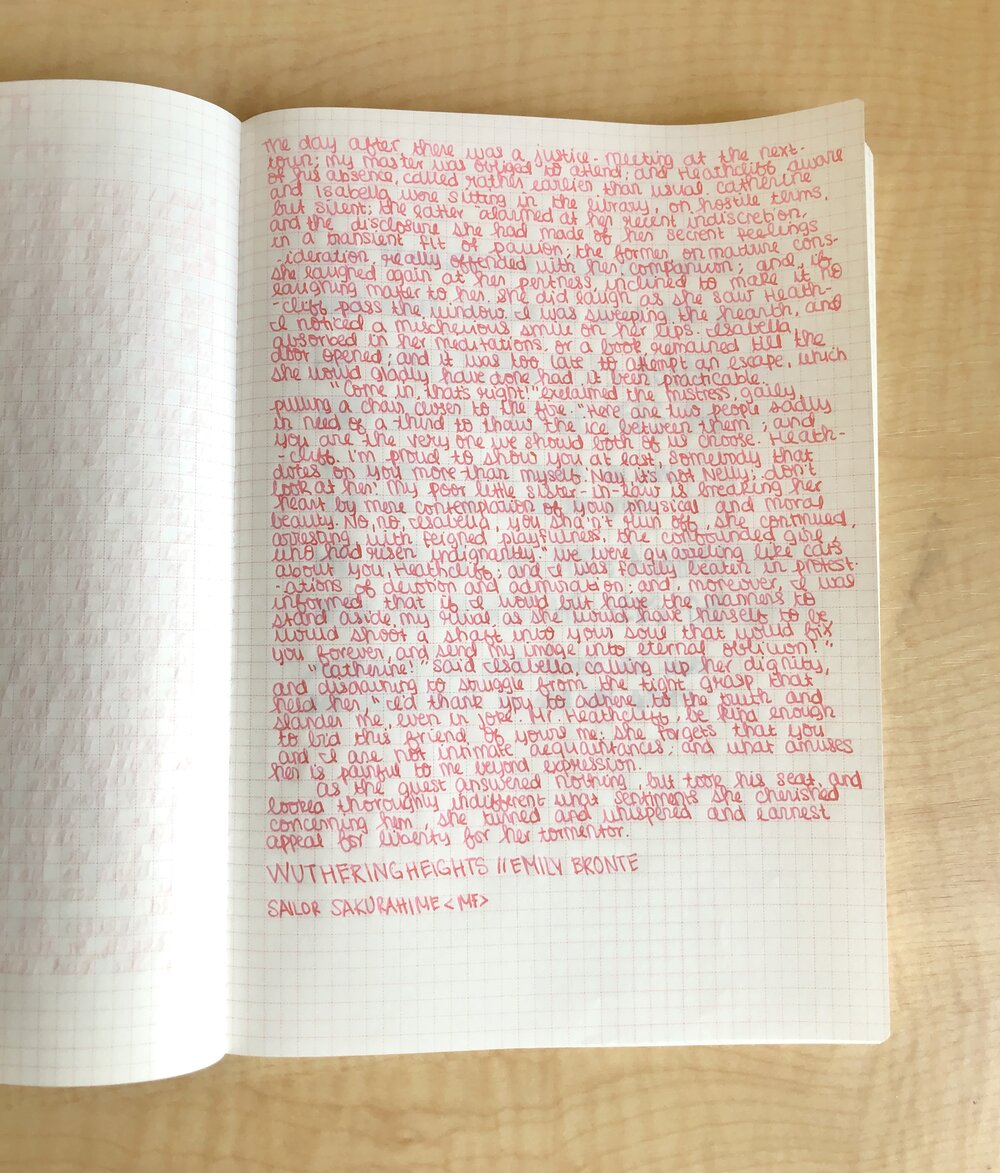 The day after there was a justice-meeting at the next-
town; my master was obliged to attend; and Heathcliff, aware
of his absence, called rather earlier than usual. Catherine
and Isabella were sitting in the library, on hostile terms,
but silent; the latter alarmed at her recent indiscretion,
and the disclosure she had made of her secret feelings
in a transient fit of passion; the former, on mature cons-
ideration really offended with her companion; and, if
she laughed again at her pertness inclined to make it no
laughing matter to her. She did laugh as she saw Heath-
-cliff pass the window. I was sweeping the hearth, and
I noticed a mischevious smile on her lips. Isabella
absorbed in her meditations, or a book remained till the
door opened; and it was too late to attempt an escape, which
she would gladly have done had it been practicable.
"Come in, that's right!" exclaimed the mistress, gaily,
pulling a chair closer to the fire. "Here are two people sadly
in need of a third to thaw the ice between them; and
you are the very one we should both of us choose. Heath-
-cliff. I'm proud to show you at last, somebody that
dotes on you more than myself. Nay it's not Nelly; don't
look at her! My poor little sister-in-law is breaking her
heart by mere contemplation of your physical and moral
beauty. No, no, Isabella, you sha'n't run off, she continued,
arresting, with feigned playfulness, the confounded girl,
who had risen indignantly. "We were quarelling like cats
about you, Heathcliff; and I was fairly beaten in protest-
ations of devotion and admiration; and, moreover, I was
informed that if I would but have the manners to
stand aside, my rival, as she would have herself to be
would shoot a shaft into your soul that would fix
you forever, and send my image into eternal oblivion!"
"Catherine!" said Isabella, calling up her dignity,
and disdaining to struggle from the tight grasp that
held her, "I'd thank you to adhere to the truth and
slander me, even in joke. Mr. Heathcliff, be kind enough
to bid this friend of yours me: she forgets that you
and I are not intimate acquaintances; and what amuses
her is painful to me beyond expression.
as the guest answered nothing, but took his seat, and
looked thoroughly indifferent what sentiments she cherished
concerning him, she turned and whispered and earnest
appeal for liberty for her tormentor.
WUTHERING HEIGHTS // EMILY BRONTE
SAILOR SAKURAHIME <MF>